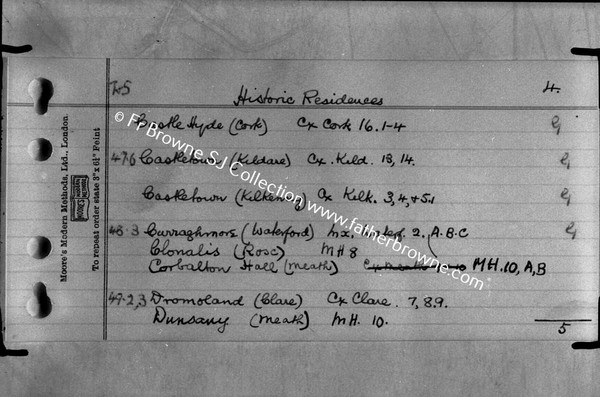 25 4.
Historic Residences
Castle Hyde (Cork) Cx Cork 16.1-4 G
47.6 Castletown (Kildare) Cx. Kild. 13, 14. G
Castletown (Kilkenny) Cx Kilk. 3, 4, +5.1 G
48.3 Curraghmore (Waterford) 2. A.B.C G
Clonalis (Rosc) MH 8
Corbalton Hall (Meath) MH. 10, A, B
47.2,3 Dromoland (Clare) Cx Clare. 7, 8.9.
Dunsany (Meath) MH. 10.
5
Moore's Modern Methods, Ltd., London.
To repeat order state 3" x 6½" Feint
© Fr Browne SJ Collection, www.fatherbrowne.com